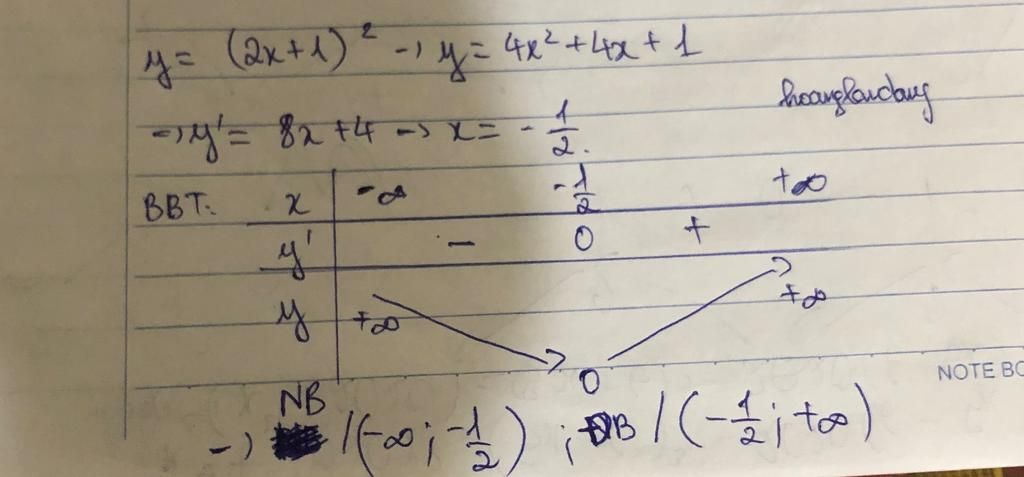 y = (2x+1)² → y = 4x² + 4x + 1
hoanglandang
→ y' = 8x + 4 → x = -1/2.
BBT: x -∞ -1/2 +∞
y' - 0 +
y +∞ 0 +∞
NOTE BO
NB
→ /(-∞; -1/2) ; ĐB /(-1/2; +∞)